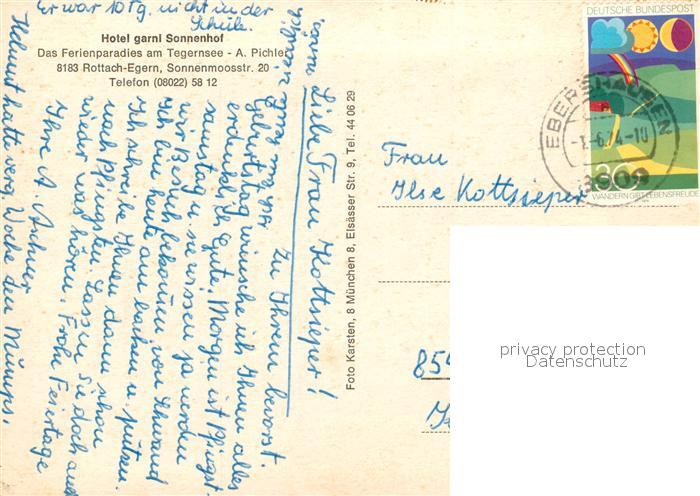 Er war 10 Tg. nicht in der
Schule.
Hotel garni Sonnenhof
Das Ferienparadies am Tegernsee - A. Pichler
8183 Rottach-Egern, Sonnenmoosstr. 20
Telefon (08022) 58 12
Liebe Frau Kottsieper!
Zu Ihrem bevorst.
Geburtstag wünsche ich Ihnen alles
erdenklich Gute. Morgen ist Pfingst-
samstag u. wir
wir Besuch bekommen von
Ich bin heute am backen u. putzen.
Ich schreibe Ihnen dann schon
nach Pfingsten. Lassen Sie doch auch
wieder was hören. Frohe Feiertage
Ihre A.
Helmut hatte verg. Woche den Mumps.
Foto Karsten, 8 München 8, Elsässer Str. 9, Tel. 44 06 29
DEUTSCHE BUNDESPOST
30
WANDERN GIBT LEBENSFREUDE
EBERSHAUSEN
Frau
Ilse Kottsieper
85
privacy protection
Datenschutz